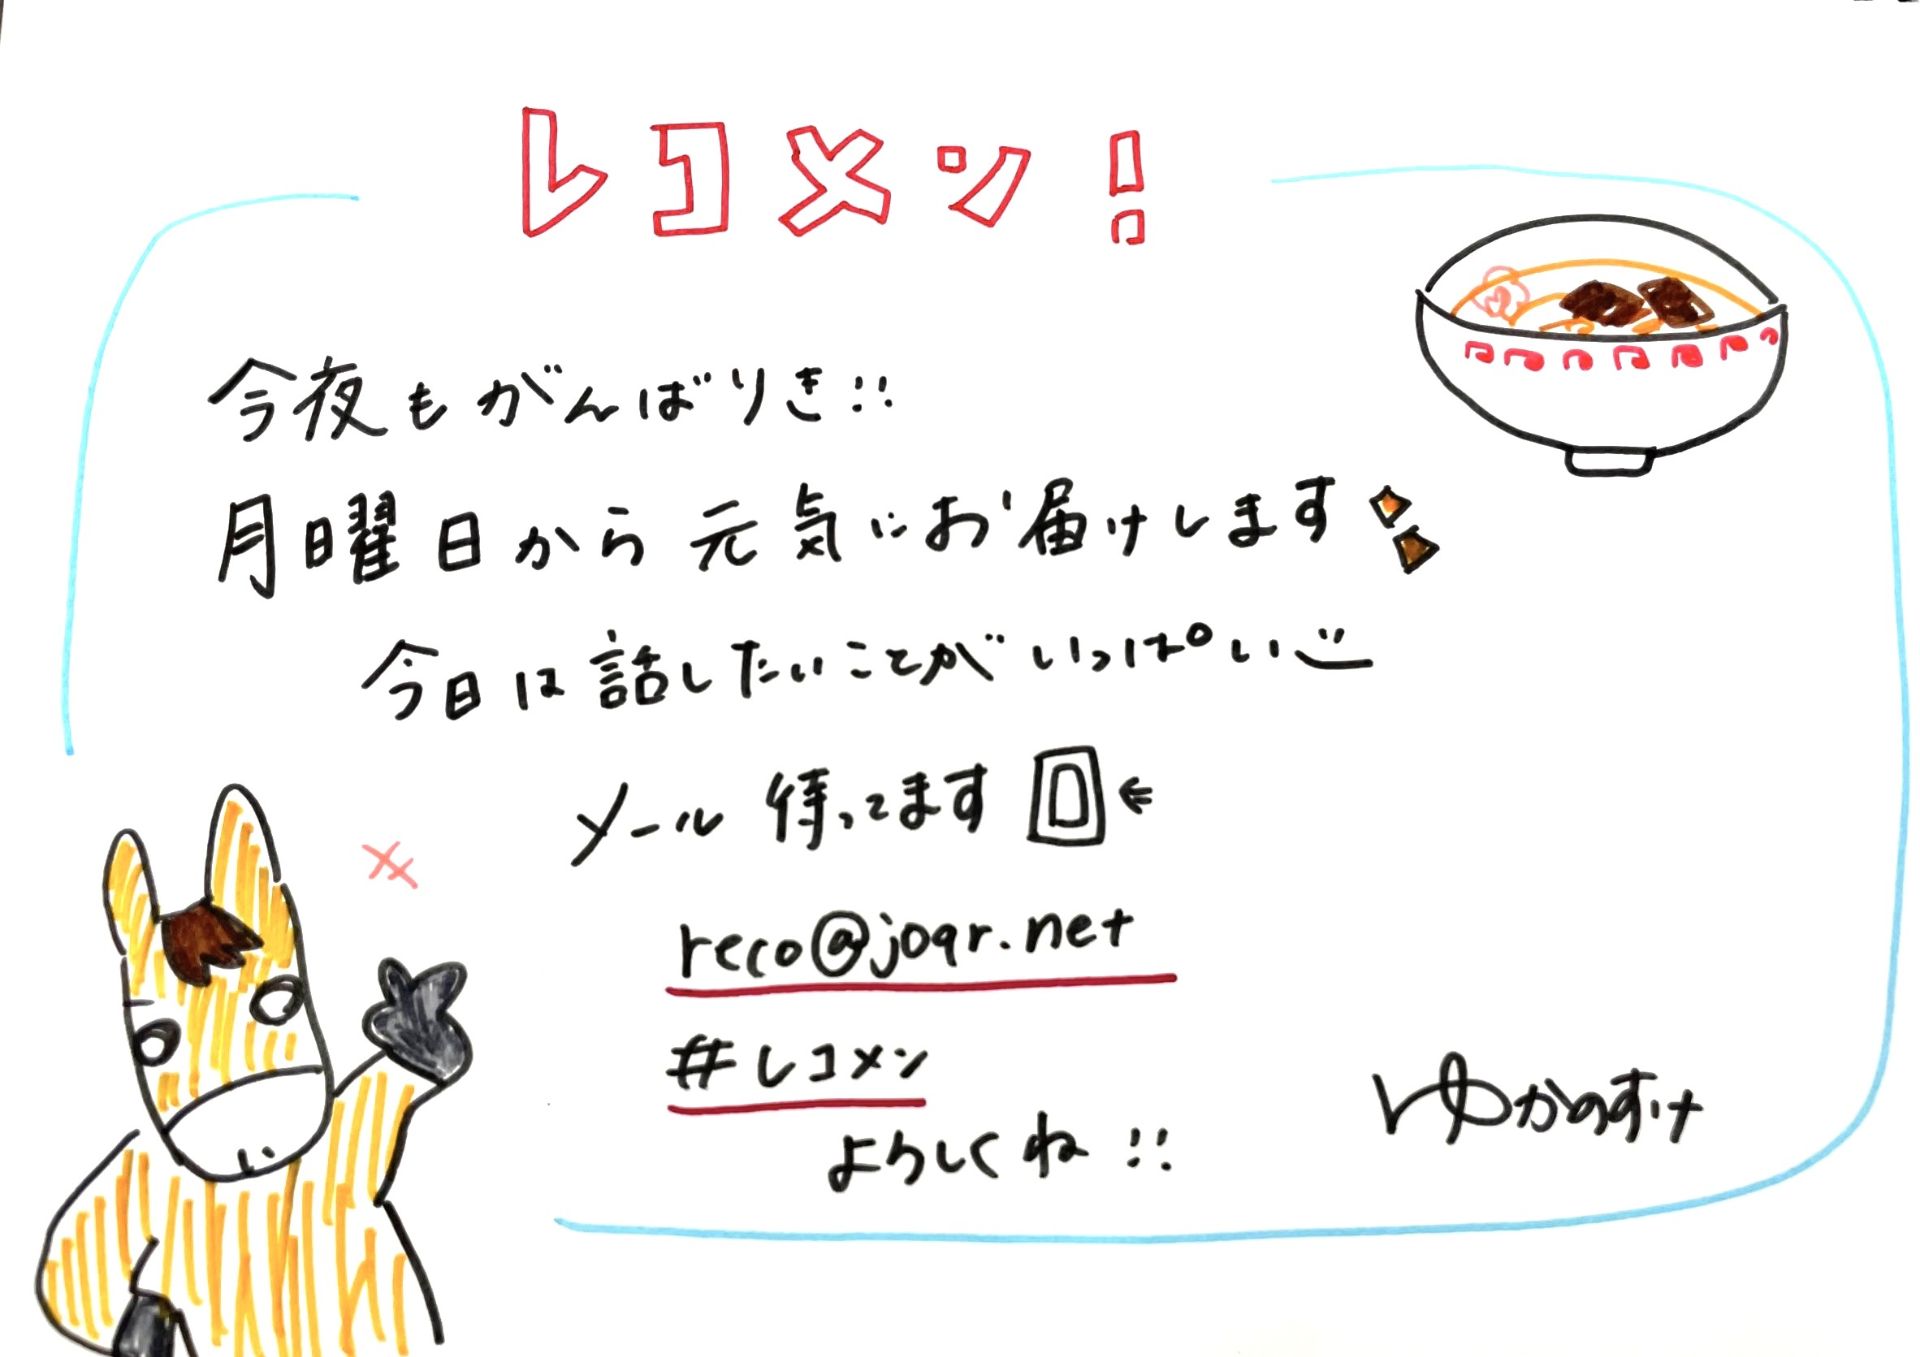 レコメン！
今夜もがんばりき!!
月曜日から元気にお届けします
今日は話したいことがいっぱい
メール待ってます
reco@joqr.net
#レコメン
よろしくね!!
ゆかのすけ